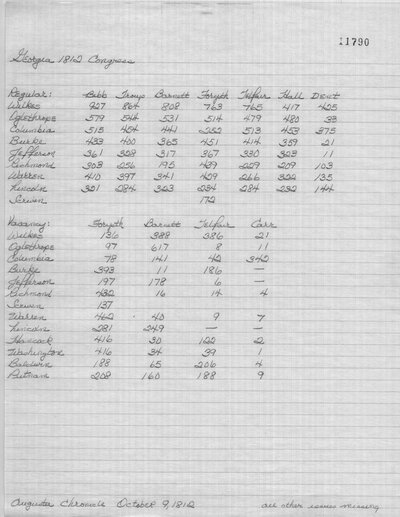 11790
Georgia 1812 Congress
Regular: Bibb Troup Barnett Forsyth Telfair Hall Dent
Wilkes 927 864 808 763 765 417 425
Oglethorpe 579 544 531 514 479 480 33
Columbia 515 454 441 252 513 453 375
Burke 433 400 365 451 414 359 21
Jefferson 361 328 317 367 330 323 11
Richmond 303 256 195 429 229 209 103
Warren 410 397 341 429 266 322 135
Lincoln 301 284 323 234 284 232 144
Screven 172
Vacancy: Forsyth Barnett Telfair Carr
Wilkes 136 388 386 21
Oglethorpe 97 617 8 11
Columbia 78 141 42 342
Burke 393 11 186 —
Jefferson 197 178 6 —
Richmond 432 16 14 4
Screven 137
Warren 462 40 9 7
Lincoln 281 249 — —
Hancock 416 30 122 2
Washington 416 34 39 1
Baldwin 188 65 206 4
Putnam 208 160 188 9
Augusta Chronicle October 9, 1812 all other issues missing